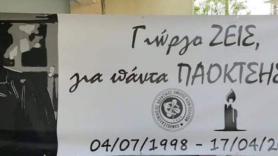 Γιώργο ΖΕΙΣ,
για πάντα ΠΑΟΚΤΣΗΣ
04/07/1998 - 17/04/2